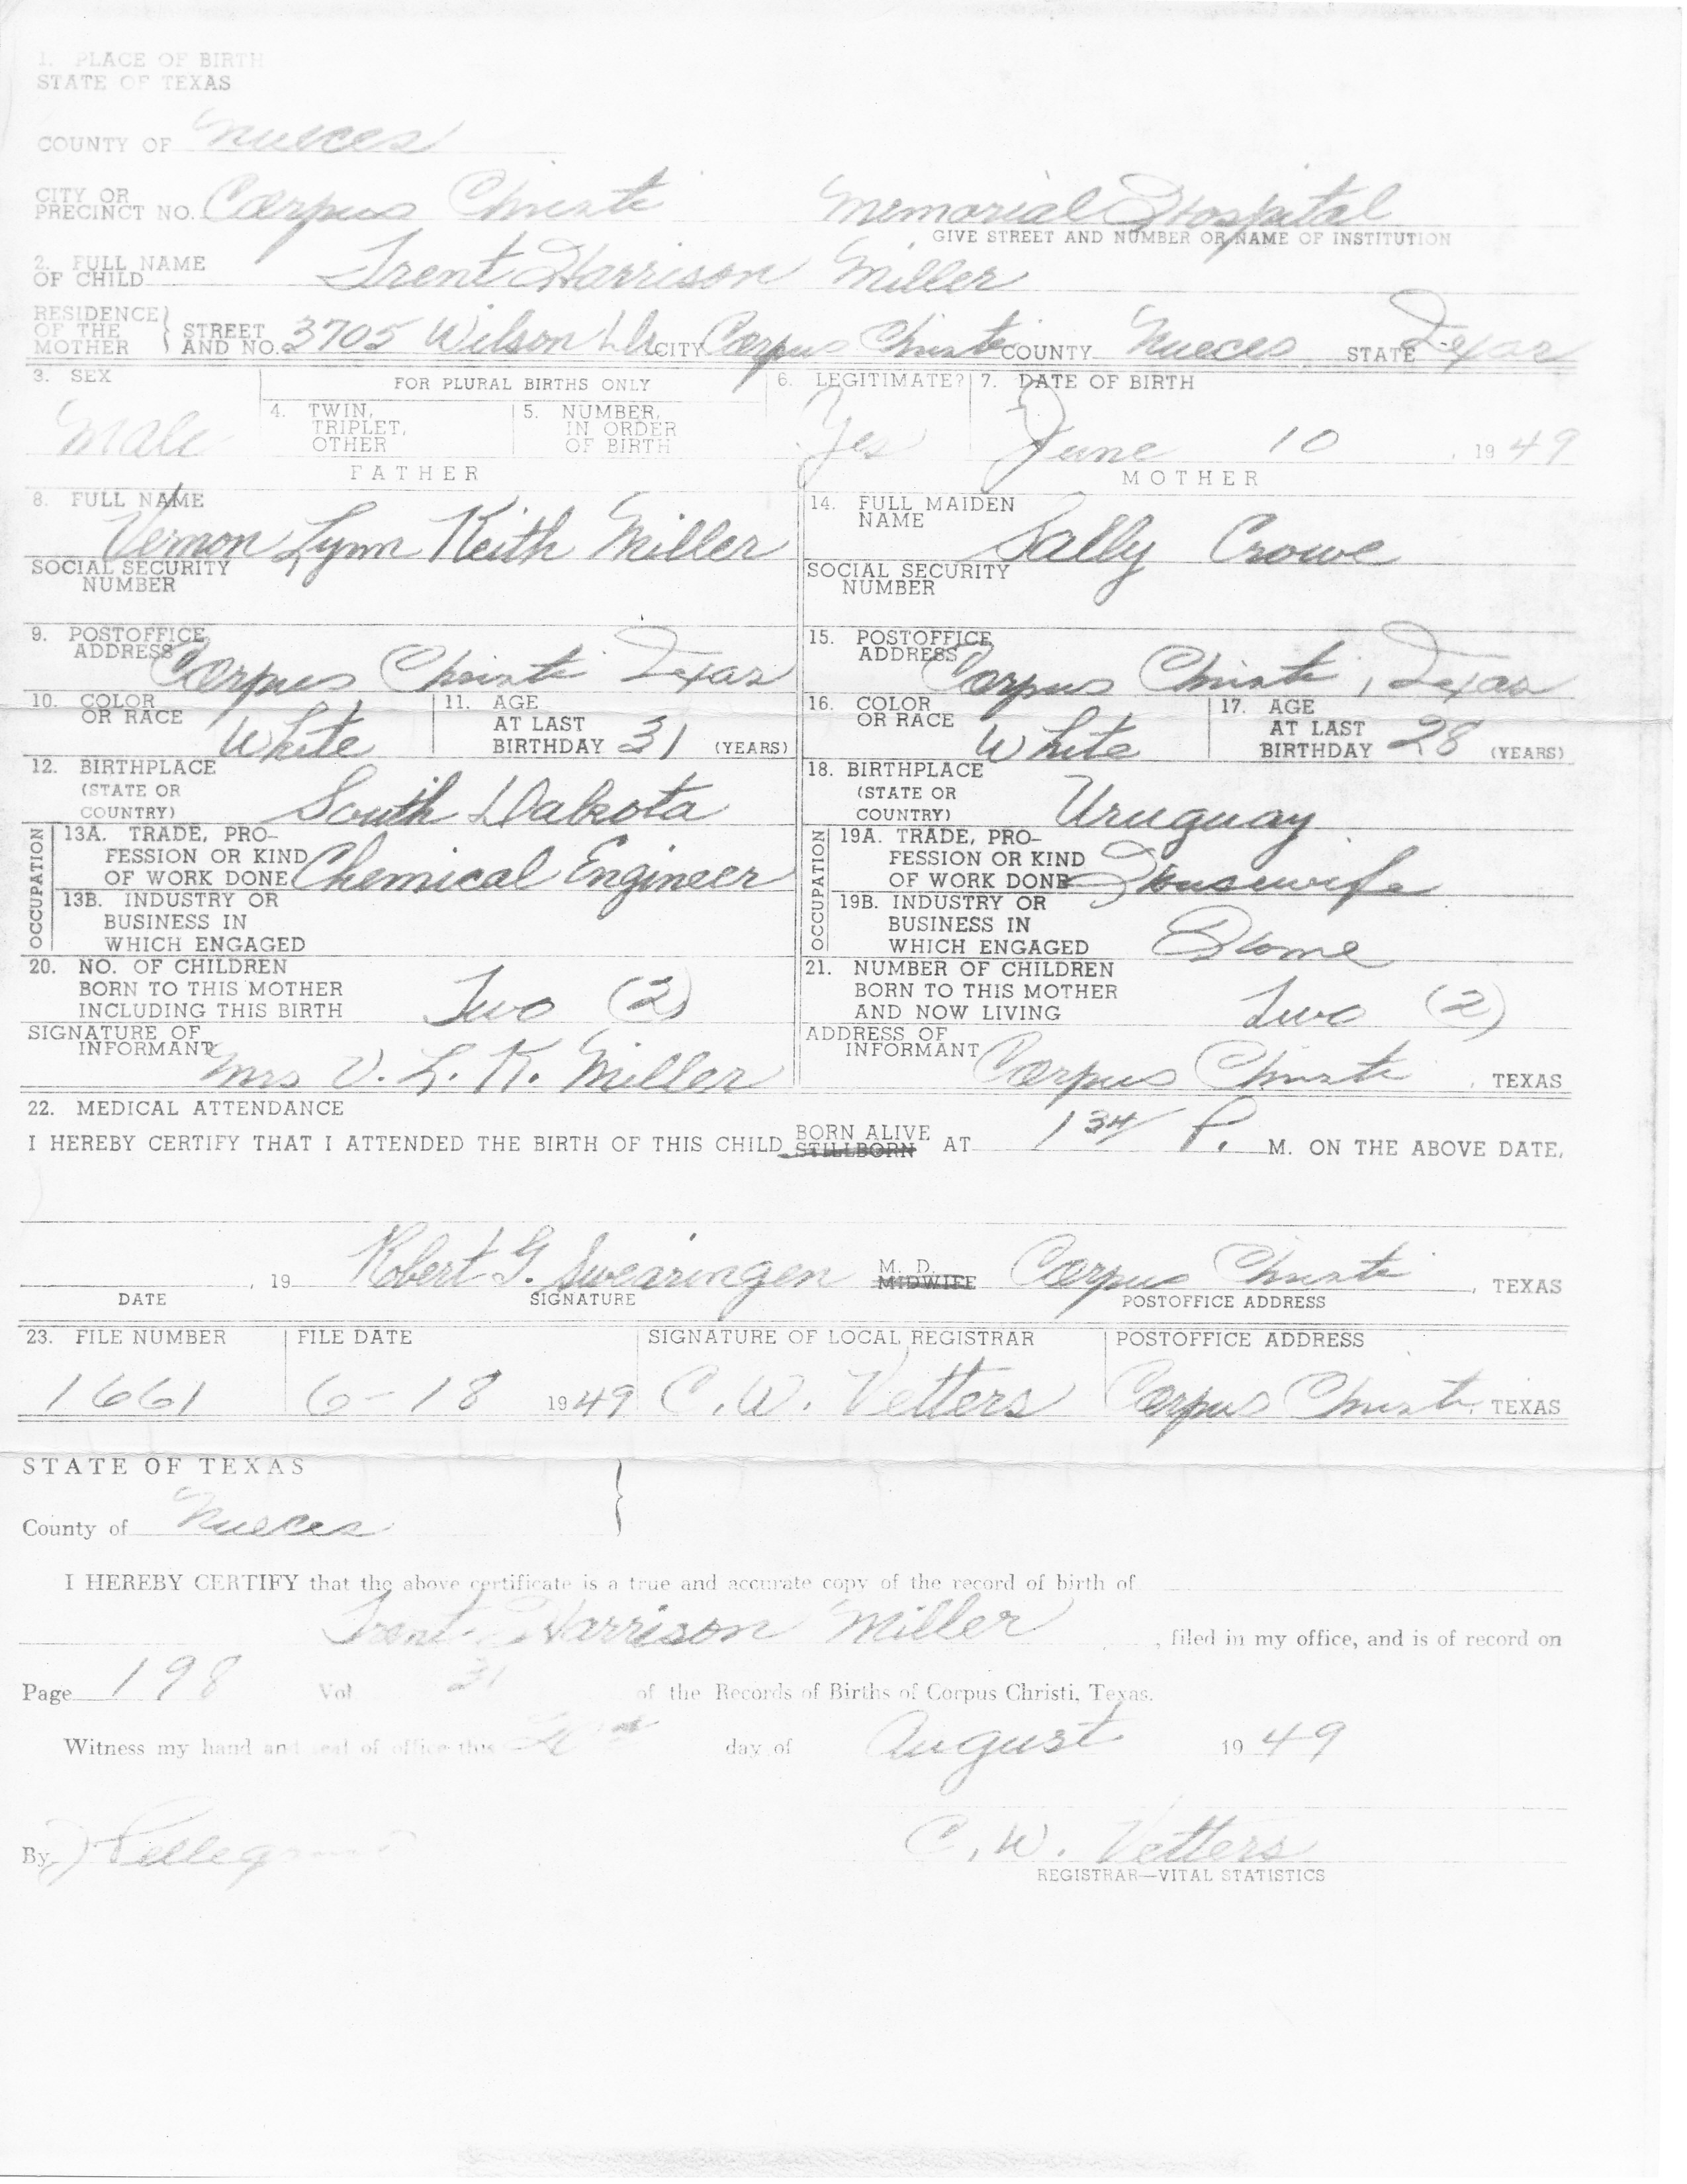 1. PLACE OF BIRTH
STATE OF TEXAS
COUNTY OF Nueces
CITY OR PRECINCT NO. Corpus Christi Memorial Hospital
GIVE STREET AND NUMBER OR NAME OF INSTITUTION
2. FULL NAME OF CHILD Trent Harrison Miller
RESIDENCE OF THE MOTHER } STREET AND NO. 3705 Wilson Dr. CITY Corpus Christi COUNTY Nueces STATE Texas
3. SEX Male
FOR PLURAL BIRTHS ONLY
4. TWIN, TRIPLET, OTHER
5. NUMBER, IN ORDER OF BIRTH
6. LEGITIMATE? Yes
7. DATE OF BIRTH June 10, 1949
FATHER
8. FULL NAME Vernon Lynn Keith Miller
SOCIAL SECURITY NUMBER
9. POSTOFFICE ADDRESS Corpus Christi Texas
10. COLOR OR RACE White
11. AGE AT LAST BIRTHDAY 31 (YEARS)
12. BIRTHPLACE (STATE OR COUNTRY) South Dakota
OCCUPATION
13A. TRADE, PROFESSION OR KIND OF WORK DONE Chemical Engineer
13B. INDUSTRY OR BUSINESS IN WHICH ENGAGED
MOTHER
14. FULL MAIDEN NAME Sally Crowe
SOCIAL SECURITY NUMBER
15. POSTOFFICE ADDRESS Corpus Christi, Texas
16. COLOR OR RACE White
17. AGE AT LAST BIRTHDAY 28 (YEARS)
18. BIRTHPLACE (STATE OR COUNTRY) Uruguay
OCCUPATION
19A. TRADE, PROFESSION OR KIND OF WORK DONE Housewife
19B. INDUSTRY OR BUSINESS IN WHICH ENGAGED Home
20. NO. OF CHILDREN BORN TO THIS MOTHER INCLUDING THIS BIRTH Two (2)
21. NUMBER OF CHILDREN BORN TO THIS MOTHER AND NOW LIVING Two (2)
SIGNATURE OF INFORMANT Mrs V. L. K. Miller
ADDRESS OF INFORMANT Corpus Christi, TEXAS
22. MEDICAL ATTENDANCE
I HEREBY CERTIFY THAT I ATTENDED THE BIRTH OF THIS CHILD BORN ALIVE STILLBORN AT 1 34 P. M. ON THE ABOVE DATE,
, 19 Robert G. Swearingen M. D. MIDWIFE Corpus Christi, TEXAS
DATE SIGNATURE POSTOFFICE ADDRESS
23. FILE NUMBER FILE DATE SIGNATURE OF LOCAL REGISTRAR POSTOFFICE ADDRESS
1661 6-18 1949 C. W. Vetters Corpus Christi, TEXAS
STATE OF TEXAS
County of Nueces }
I HEREBY CERTIFY that the above certificate is a true and accurate copy of the record of birth of
Trent Harrison Miller, filed in my office, and is of record on
Page 198 Vol 31 of the Records of Births of Corpus Christi, Texas.
Witness my hand and seal of office this day of August 1949
By
C. W. Vetters
REGISTRAR—VITAL STATISTICS